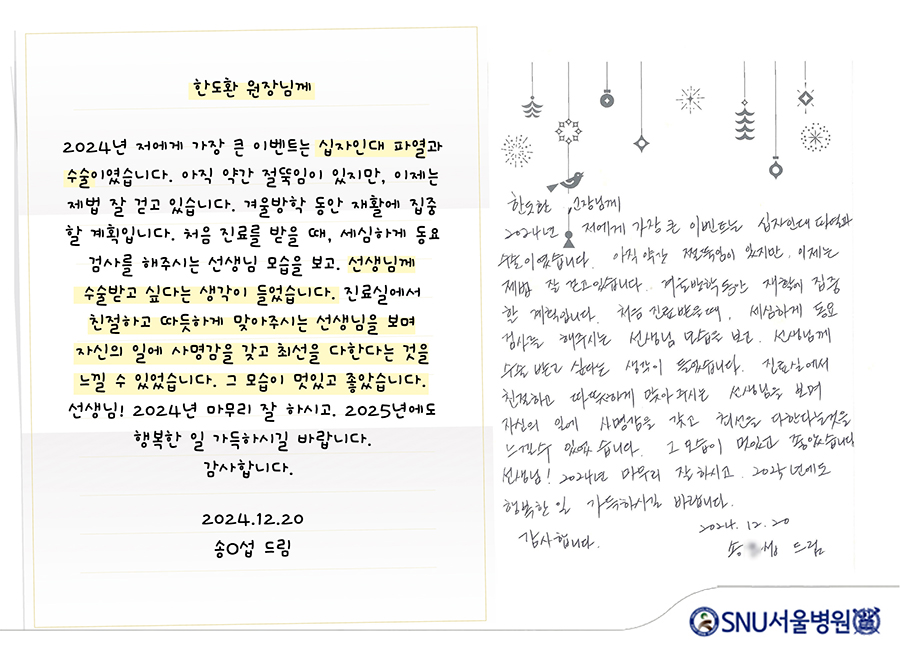 한도환 원장님께
2024년 저에게 가장 큰 이벤트는 십자인대 파열과
수술이였습니다. 아직 약간 절뚝임이 있지만, 이제는
제법 잘 걷고 있습니다. 겨울방학 동안 재활에 집중
할 계획입니다. 처음 진료를 받을 때, 세심하게 동요
검사를 해주시는 선생님 모습을 보고. 선생님께
수술받고 싶다는 생각이 들었습니다. 진료실에서
친절하고 따듯하게 맞아주시는 선생님을 보며
자신의 일에 사명감을 갖고 최선을 다한다는 것을
느낄 수 있었습니다. 그 모습이 멋있고 좋았습니다.
선생님! 2024년 마무리 잘 하시고. 2025년에도
행복한 일 가득하시길 바랍니다.
감사합니다.
2024.12.20
송O섭 드림
한도환 원장님께
2024년 저에게 가장 큰 이벤트는 십자인대 파열과
수술이였습니다. 아직 약간 절뚝임이 있지만, 이제는
제법 잘 걷고 있습니다. 겨울방학 동안 재활에 집중
할 계획입니다. 처음 진료 받을 때, 세심하게 동요
검사를 해주시는 선생님 모습을 보고. 선생님께
수술 받고 싶다는 생각이 들었습니다. 진료실에서
친절하고 따뜻하게 맞아주시는 선생님을 보며
자신의 일에 사명감을 갖고 최선을 다한다는 것을
느낄 수 있었습니다. 그 모습이 멋있고 좋았습니다
선생님! 2024년 마무리 잘 하시고. 2025년에도
행복한 일 가득하시길 바랍니다.
감사합니다.
2024. 12. 20
송 섭 드림
SNU서울병원